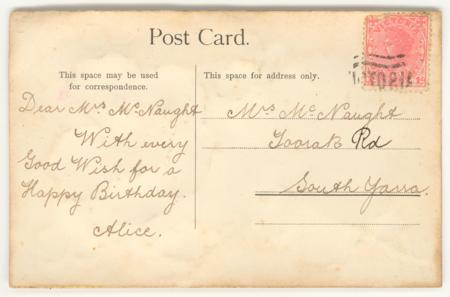 Post Card.
This space may be used
for correspondence.
This space for address only.
Dear Mrs McNaught
With every
Good Wish for a
Happy Birthday.
Alice.
Mrs McNaught
Toorak Rd
South Yarra.
VICTORIA